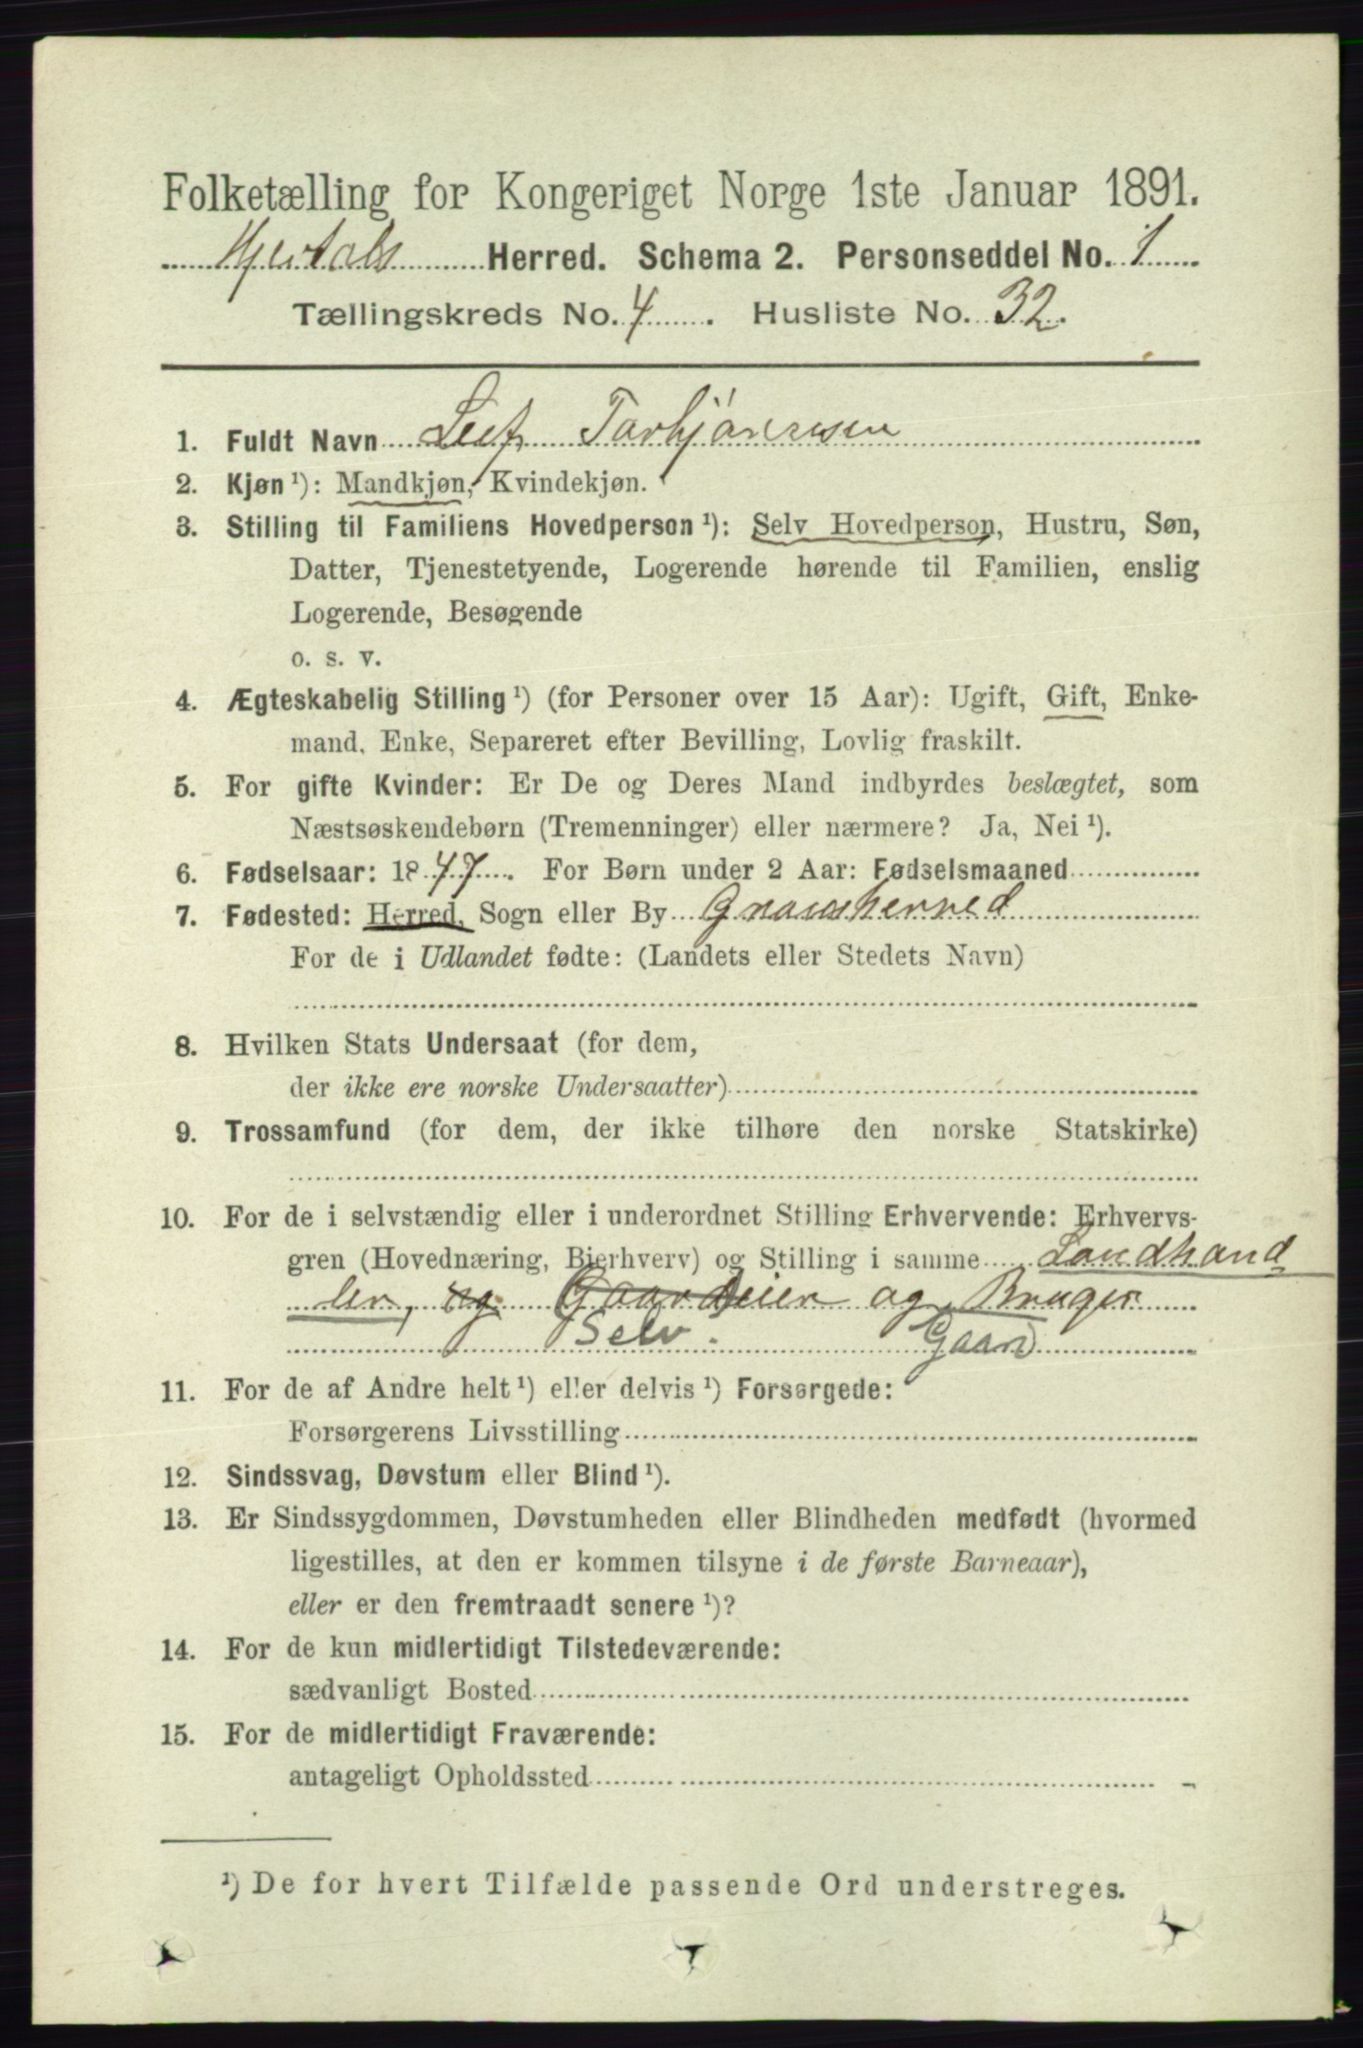 Folketælling for Kongeriget Norge 1ste Januar 1891.
Hjertdals Herred. Schema 2. Personseddel No. 1
Tællingskreds No. 4. Husliste No. 32.
1. Fuldt Navn Leif Torbjørnsen
2. Kjøn ¹): Mandkjøn, Kvindekjøn.
3. Stilling til Familiens Hovedperson ¹): Selv Hovedperson, Hustru, Søn,
Datter, Tjenestetyende, Logerende hørende til Familien, enslig
Logerende, Besøgende
o. s. v.
4. Ægteskabelig Stilling ¹) (for Personer over 15 Aar): Ugift, Gift, Enke-
mand, Enke, Separeret efter Bevilling, Lovlig fraskilt.
5. For gifte Kvinder: Er De og Deres Mand indbyrdes beslægtet, som
Næstsøskendebørn (Tremenninger) eller nærmere? Ja, Nei ¹).
6. Fødselsaar: 1847. For Børn under 2 Aar: Fødselsmaaned
7. Fødested: Herred, Sogn eller By Gransherred
For de i Udlandet fødte: (Landets eller Stedets Navn)
8. Hvilken Stats Undersaat (for dem,
der ikke ere norske Undersaatter)
9. Trossamfund (for dem, der ikke tilhøre den norske Statskirke)
10. For de i selvstændig eller i underordnet Stilling Erhvervende: Erhvervs-
gren (Hovednæring, Bierhverv) og Stilling i samme Landhand-
ler, og Gaardeier og Bruger
Selv. Gaard
11. For de af Andre helt ¹) eller delvis ¹) Forsørgede:
Forsørgerens Livsstilling
12. Sindssvag, Døvstum eller Blind ¹).
13. Er Sindssygdommen, Døvstumheden eller Blindheden medfødt (hvormed
ligestilles, at den er kommen tilsyne i de første Barneaar),
eller er den fremtraadt senere ¹)?
14. For de kun midlertidigt Tilstedeværende:
sædvanligt Bosted
15. For de midlertidigt Fraværende:
antageligt Opholdssted
¹) De for hvert Tilfælde passende Ord understreges.